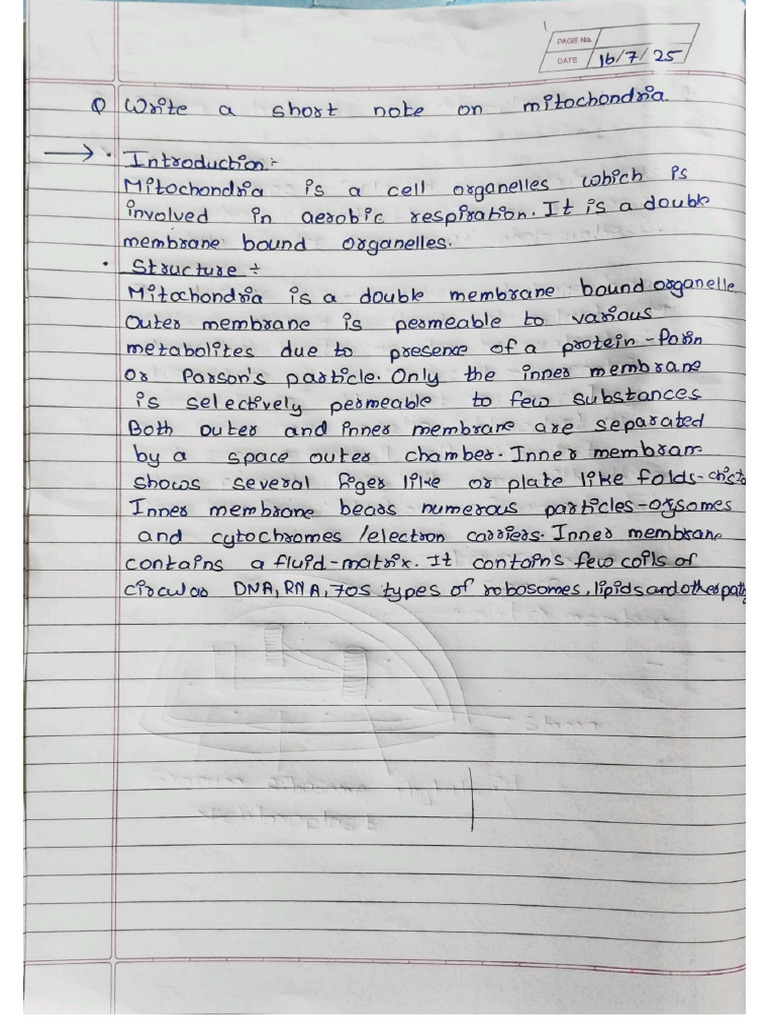 PAGE No.
DATE 16/7/25
Q Write a short note on mitochondria.
→ • Introduction :-
Mitochondria is a cell organelles which is
involved in aerobic respiration. It is a double
membrane bound organelles.
• Structure ÷
Mitochondria is a double membrane bound organelle.
Outer membrane is permeable to various
metabolites due to presence of a protein - Porin
or Parson's particle. Only the inner membrane
is selectively permeable to few substances
Both outer and inner membrane are separated
by a space outer chamber. Inner membram
shows several figer like or plate like folds-
Inner membrane bears numerous particles-
and cytochromes /electron carriers. Inner membrane
contains a fluid-matrix. It contains few coils of
circular DNA, RNA, 70s types of robosomes, lipids and other